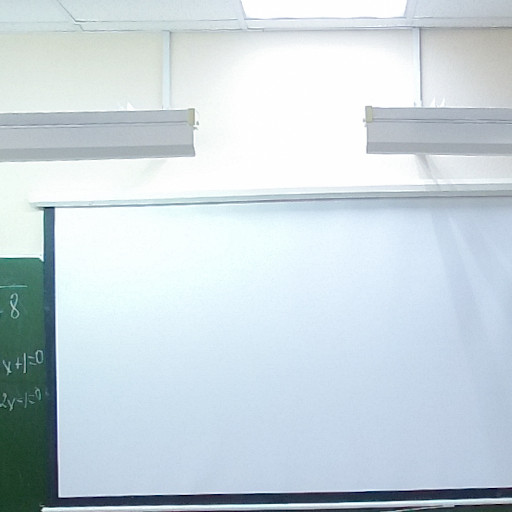 8
x+1=0
2x-1=0